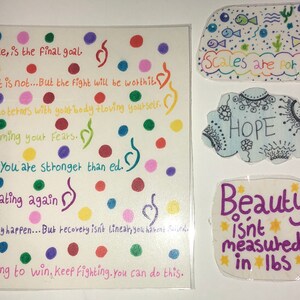 , is the final goal.
t is not...But the fight will be worth it.
with your body loving yourself.
ming your fears.
You are stronger than ed.
ating again
y happen... But recovery isn't linear, you
ng to win, keep fighting. you can do this.
Scales are for
HOPE
Beauty
isnt
measured
in lbs